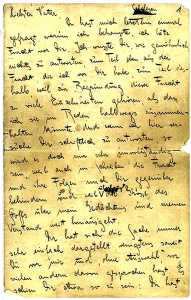 Liebster Vater,
Du hast mich letzthin einmal
gefragt, warum ich behaupte, ich hätte
Furcht vor Dir. Ich wusste Dir, wie gewöhnlich,
nichts zu antworten, zum Teil eben aus der
Furcht, die ich vor Dir habe, zum Teil
deshalb, weil zur Begründung dieser Furcht
zu viele Einzelnheiten gehören, als dass
ich sie im Reden halbwegs zusammen-
halten könnte. Und wenn ich hier ver-
suche Dir schriftlich zu antworten, so
wird es doch nur sehr unvollständig
sein, weil auch im Schreiben die Furcht
und ihre Folgen mich Dir gegenüber
behindern und weil die Grösse des
Stoffs über mein Gedächtnis und meinen
Verstand weit hinausgeht.
Dir hat sich die Sache immer
sehr einfach dargestellt, wenigstens soweit
Du vor mir und, ohne Auswahl, vor
vielen andern davon gesprochen hast. Es
schien Dir etwa so zu sein: Du hast